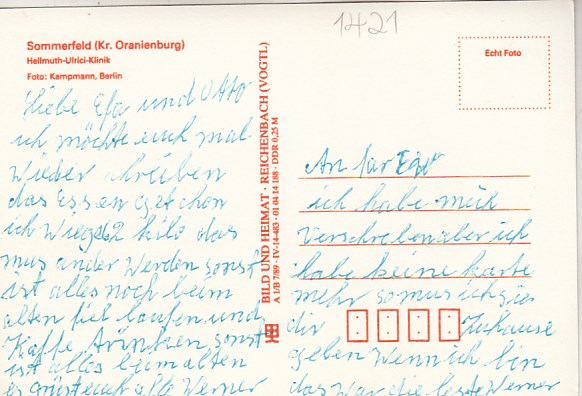 1421
Sommerfeld (Kr. Oranienburg)
Hellmuth-Ulrici-Klinik
Foto: Kampmann, Berlin
Echt Foto
BILD UND HEIMAT · REICHENBACH (VOGTL)
A 1/B 7/89 · IV-14-483 · 01 04 14 188 · DDR 0,25 M
Liebe Efa und Otto
ich möchte euch mal
wieder schreiben
das Essen get schon
ich Wiege 62 kilo das
mus ander Werden sonst
ist alles noch beim
alten fiel laufen und
Kaffe trinken sonst
ist alles beim alten
es grüst euch alle Werner
An
ich habe mich
verschreben aber ich
habe keine karte
mehr so mus ich sie
dir Zuhause
geben Wenn ich bin
das war die leste Werner